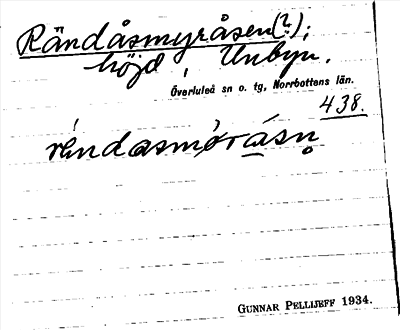 Rändåsmyråsen(?);
höjd, Unbyn.
Överluleå sn o. tg, Norrbottens län.
438.
rèndasmýrásn̥
GUNNAR PELLIJEFF 1934.